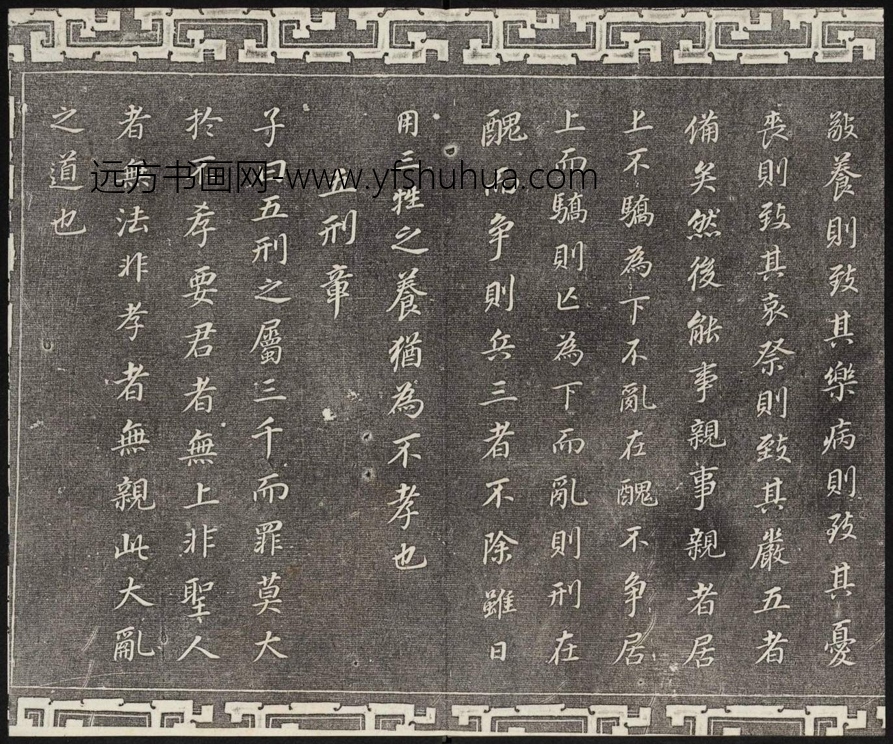 敬養則致其樂病則致其憂
喪則致其哀祭則致其嚴五者
備矣然後能事親事親者居
上不驕為下不亂在醜不争居
上而驕則亡為下而亂則刑在
醜而争則兵三者不除雖日
用三牲之養猶為不孝也
五刑章
子曰五刑之屬三千而罪莫大
於不孝要君者無上非聖人
者無法非孝者無親此大亂
之道也
远方书画网-www.yfshuhua.com